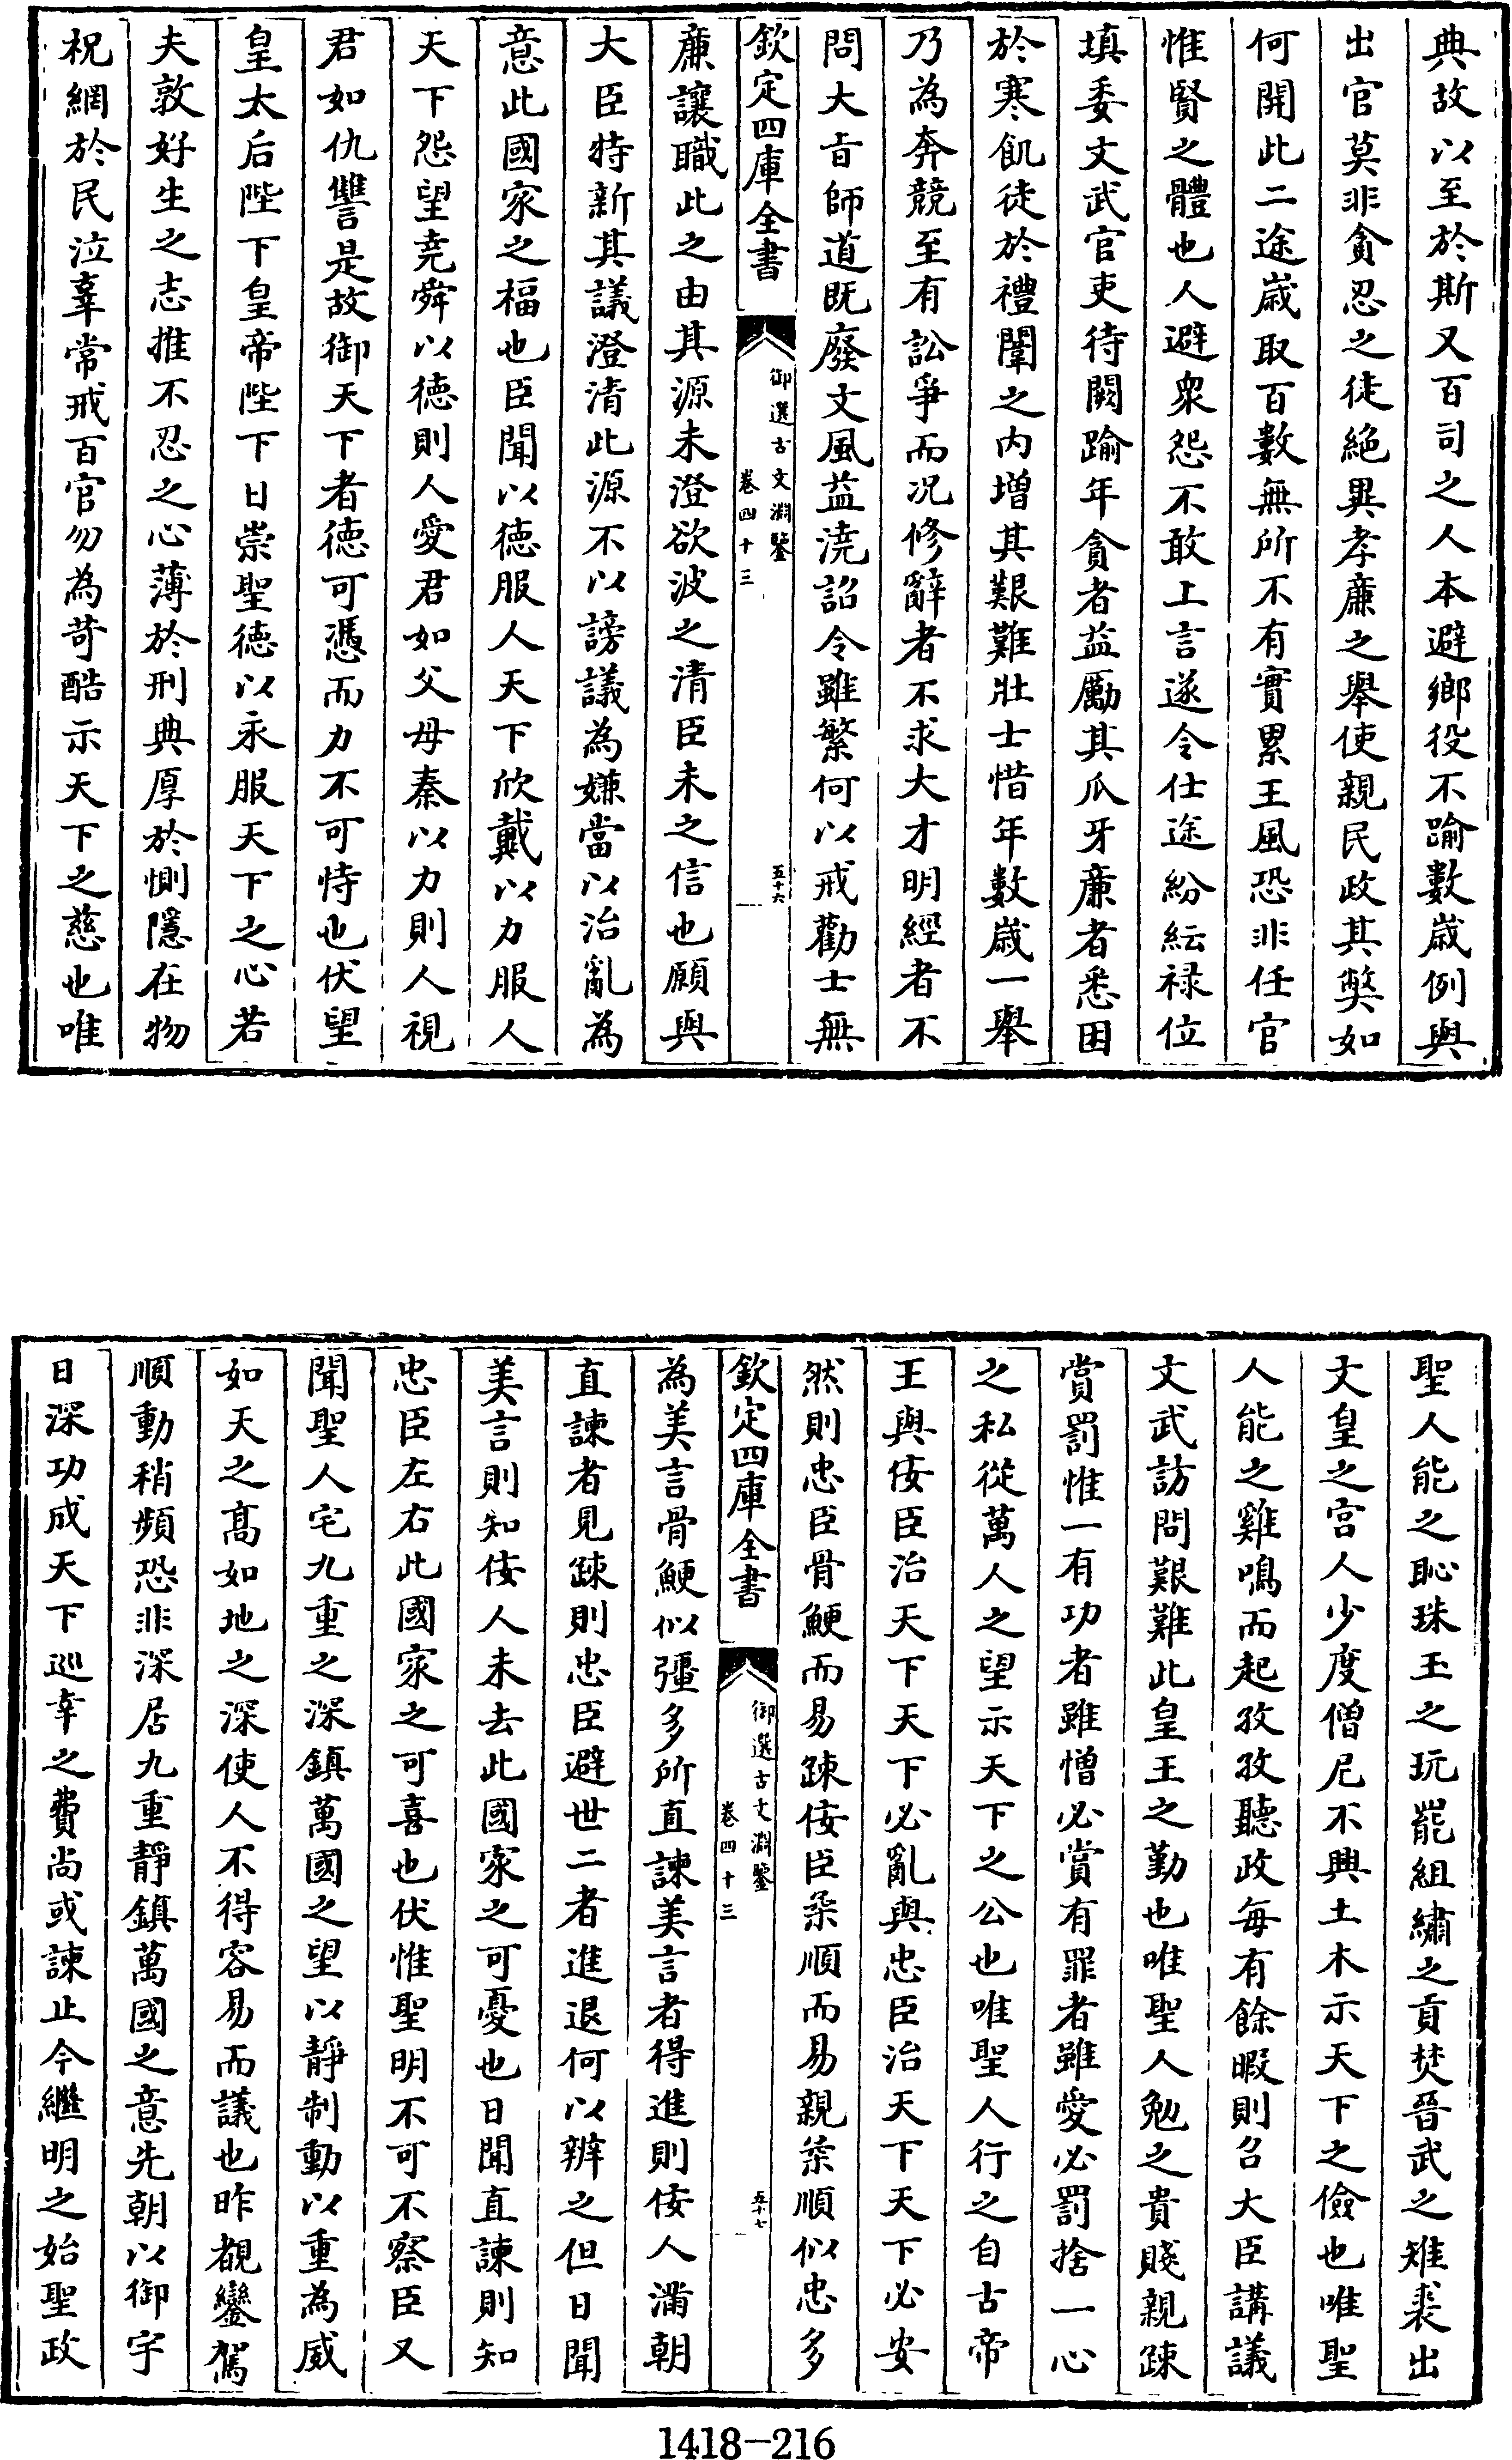 典故以至於斯又百司之人本避鄉役不踰數歳例與
出官莫非貪忍之徒絶異孝亷之舉使親民政其獘如
何開此二途歳取百數無所不有實累王風恐非任官
惟賢之體也人避衆怨不敢上言遂令仕途紛紜禄位
填委文武官吏待闕踰年貪者益勵其爪牙亷者悉困
於寒飢徒於禮闈之内增其艱難壯士惜年數歳一舉
乃為奔競至有訟爭而况修辭者不求大才明經者不
問大旨師道既廢文風益澆詔令雖繁何以戒勸士無
欽定四庫全書
御選古文淵鑒
卷四十三
五十六
亷讓職此之由其源未澄欲波之清臣未之信也願與
大臣特新其議澄清此源不以謗議為嫌當以治亂為
意此國家之福也臣聞以徳服人天下欣戴以力服人
天下怨望堯舜以徳則人愛君如父母秦以力則人視
君如仇讐是故御天下者徳可憑而力不可恃也伏望
皇太后陛下皇帝陛下日崇聖徳以永服天下之心若
夫敦好生之志推不忍之心薄於刑典厚於惻隱在物
祝網於民泣辜常戒百官勿為苛酷示天下之慈也唯
聖人能之恥珠玉之玩罷組繡之貢焚晉武之雉裘出
文皇之宫人少度僧尼不興土木示天下之儉也唯聖
人能之雞鳴而起孜孜聽政每有餘暇則召大臣講議
文武訪問艱難此皇王之勤也唯聖人勉之貴賤親疎
賞罰惟一有功者雖憎必賞有罪者雖愛必罰捨一心
之私從萬人之望示天下之公也唯聖人行之自古帝
王與佞臣治天下天下必亂與忠臣治天下天下必安
然則忠臣骨鯁而易疎佞臣柔順而易親柔順似忠多
欽定四庫全書
御選古文淵鑒
卷四十三
五十七
為美言骨鯁似彊多所直諫美言者得進則佞人滿朝
直諫者見疎則忠臣避世二者進退何以辨之但日聞
美言則知佞人未去此國家之可憂也日聞直諫則知
忠臣左右此國家之可喜也伏惟聖明不可不察臣又
聞聖人宅九重之深鎮萬國之望以靜制動以重為威
如天之髙如地之深使人不得容易而議也昨覩鑾駕
順動稍頻恐非深居九重靜鎮萬國之意先朝以御宇
日深功成天下巡幸之費尚或諫止今繼明之始聖政
1418-216